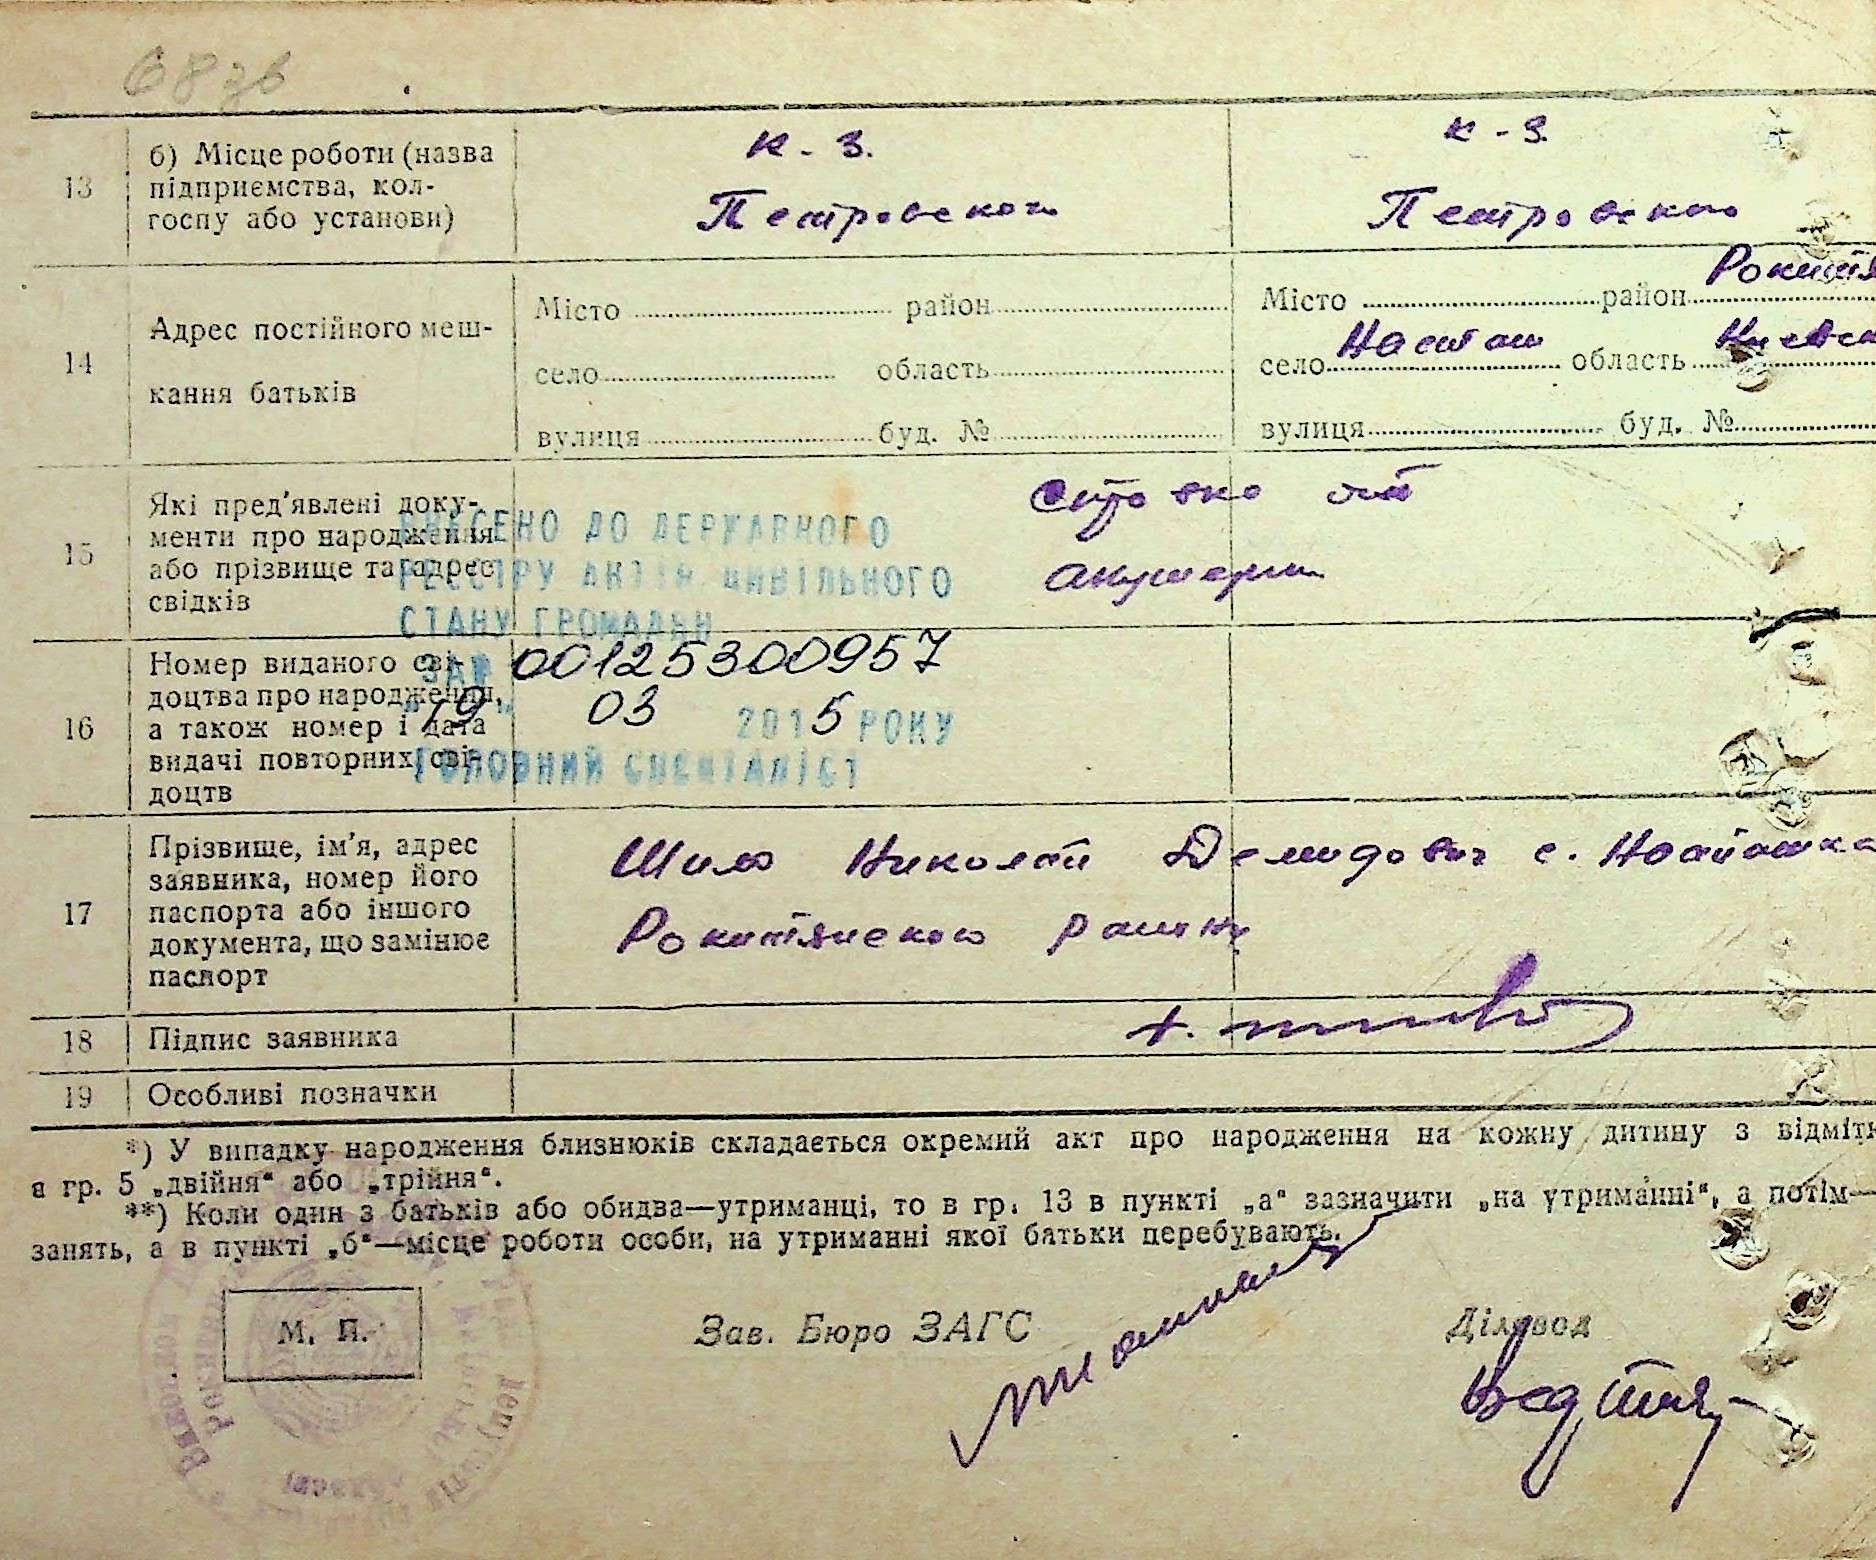 68 зв
13
б) Місце роботи (назва
підприємства, кол-
госпу або установи)
к-з.
Петровского
к-з.
Петровского
14
Адрес постійного меш-
кання батьків
Місто район
село область
вулиця буд. №
Місто район Рокитя
село Насташ область Киевск
вулиця буд. №
15
Які пред'явлені доку-
менти про народження
або прізвище та адрес
свідків
от
акушерки
ВНЕСЕНО ДО ДЕРЖАВНОГО
РЕЄСТРУ АКТІВ ЦИВІЛЬНОГО
СТАНУ ГРОМАДЯН
ЗА № 00125300957
"19" 03 2015 РОКУ
ГОЛОВНИЙ СПЕЦІАЛІСТ
16
Номер виданого сві-
доцтва про народження,
а також номер і дата
видачі повторних сві-
доцтв
17
Прізвище, ім'я, адрес
заявника, номер його
паспорта або іншого
документа, що замінює
паспорт
Шило Николай Демидович с. Насташка
Рокитянского району
18
Підпис заявника
19
Особливі позначки
*) У випадку народження близнюків складається окремий акт про народження на кожну дитину з відмітк
в гр. 5 „двійня“ або „трійня“.
**) Коли один з батьків або обидва—утриманці, то в гр. 13 в пункті „а“ зазначити „на утриманні“, а потім—
занять, а в пункті „б“—місце роботи особи, на утриманні якої батьки перебувають.
М. П.
Зав. Бюро ЗАГС
Діловод